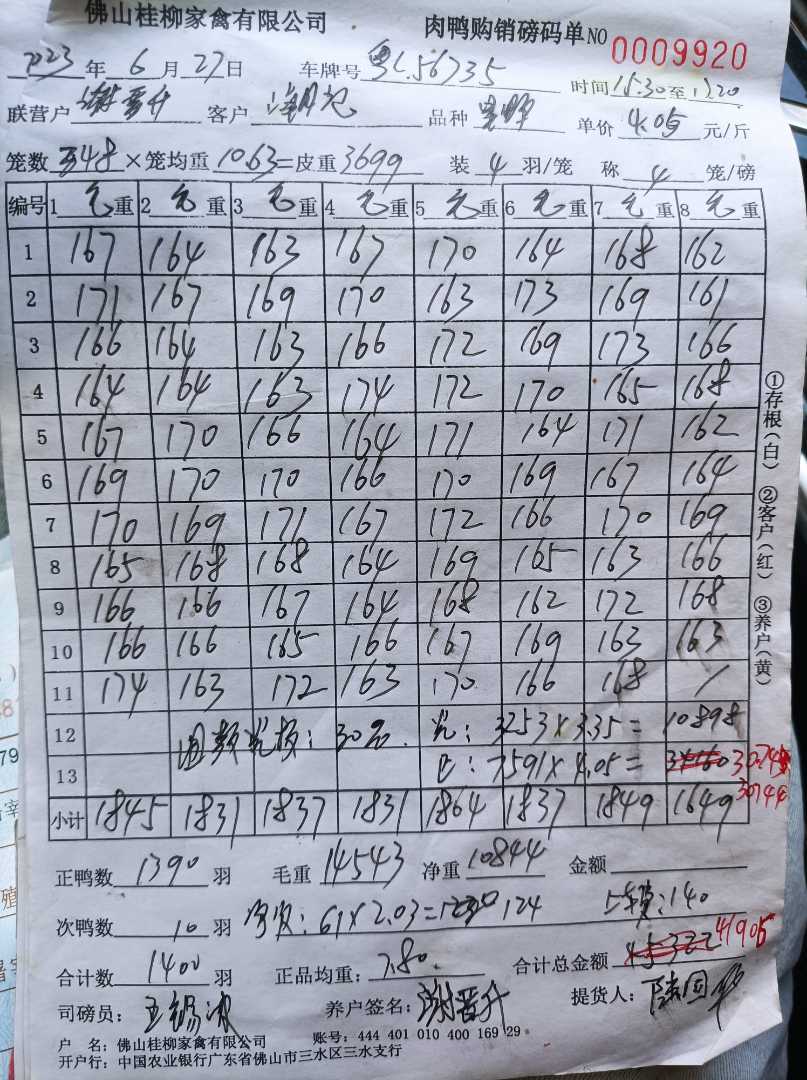 佛山桂柳家禽有限公司 肉鸭购销磅码单 NO 0009920
2023 年 6 月 27 日 车牌号 粤L56735 时间 15:30 至 17:20
联营户 谢晋升 客户 品种 单价 4.05 元/斤
笼数 348 × 笼均重 10.63 = 皮重 3699 装 4 羽/笼 称 4 笼/磅
编号 1 毛 重 2 毛 重 3 毛 重 4 毛 重 5 毛 重 6 毛 重 7 毛 重 8 毛 重
1 167 164 163 167 170 164 168 162
2 171 167 169 170 163 173 169 161
3 166 164 163 166 172 169 173 166
4 164 164 163 174 172 170 165 168
5 167 170 166 164 171 164 171 162
6 169 170 170 166 170 169 167 164
7 170 169 171 167 172 166 170 169
8 165 168 168 164 169 165 163 166
9 166 166 167 164 168 162 172 168
10 166 166 165 166 167 169 163 163
11 174 163 172 163 170 166 168 /
12 30 : 3253 × 3.35 = 10898
13 : 7591 × 4.05 = 30744
小计 1845 1831 1837 1831 1864 1837 1849 1649 30744
正鸭数 1390 羽 毛重 14543 净重 10844 金额
次鸭数 10 羽 : 61 × 2.03 = 124 : 140
合计数 1400 羽 正品均重: 7.80 合计总金额 41905
司磅员: 王锡冰 养户签名: 谢晋升 提货人: 陆国华
户 名: 佛山桂柳家禽有限公司 账号: 444 401 010 400 169 29
开户行: 中国农业银行广东省佛山市三水区三水支行
①存根(白) ②客户(红) ③养户(黄)